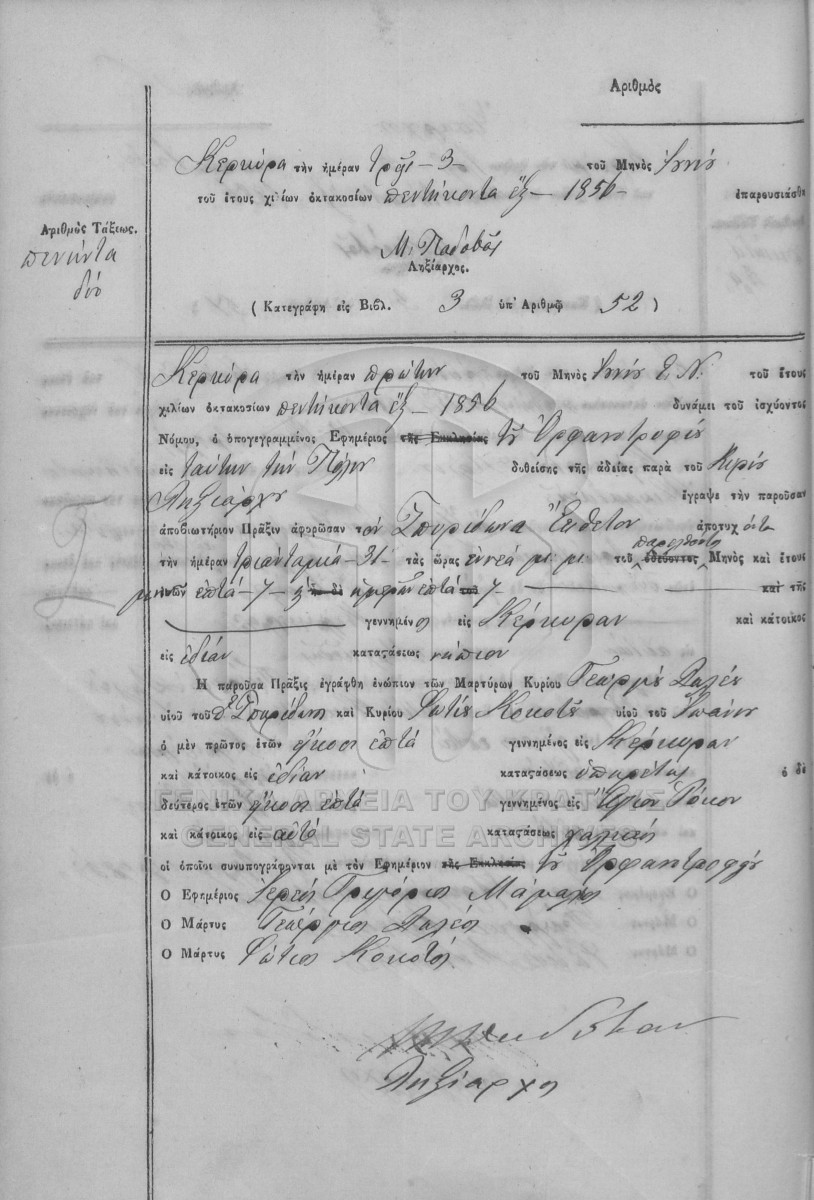 Ἀριθμὸς
Κερκύρα τὴν ἡμέραν τρεῖς - 3 - τοῦ Μηνὸς
τοῦ ἔτους χιλίων ὀκτακοσίων πεντήκοντα ἕξ - 1856 - ἐπαρουσιάσθη
Ἀριθμὸς Τάξεως.
πενῆντα
δύο
Ληξίαρχος.
( Κατεγράφη εἰς Βιβλ. 3 ὑπ' Ἀριθμῷ 52 )
Κερκύρα τὴν ἡμέραν πρώτην τοῦ Μηνὸς Ε. Ν. τοῦ ἔτους
χιλίων ὀκτακοσίων πεντήκοντα ἕξ - 1856 δυνάμει τοῦ ἰσχύοντος
Νόμου, ὁ ὑπογεγραμμένος Ἐφημέριος τῆς Ἐκκλησίας τοῦ Ὀρφαντροφίου
εἰς ταύτην τὴν Πόλιν δοθείσης τῆς ἀδείας παρὰ τοῦ Κυρίου
Ληξιάρχου ἔγραψε τὴν παροῦσαν
ἀποβιωτήριον Πρᾶξιν ἀφορῶσαν τὸν Σπυρίδωνα Ἔκθετον ἀποτυχόντα
παρελθόντος
τὴν ἡμέραν τριάντα μία - 31 - τὰς ὥρας ἐννέα μ. μ. τοῦ ὁδεύοντος Μηνὸς καὶ ἔτους
μηνῶν ἑπτά - 7 - ἡμερῶν ἑπτά 7 - καὶ τῆς
γεννημένος εἰς Κέρκυραν καὶ κάτοικος
εἰς ἰδίαν καταστάσεως νήπιον
Ἡ παροῦσα Πρᾶξις ἐγράφθη ἐνώπιον τῶν Μαρτύρων Κυρίου Γεωργίου
υἱοῦ τοῦ Σπυρίδωνος καὶ Κυρίου Φωτίου Κοκοτοῦ υἱοῦ τοῦ Ἰωάννου
ὁ μὲν πρῶτος ἐτῶν εἴκοσι ἑπτά γεννημένος εἰς Κέρκυραν
καὶ κάτοικος εἰς ἰδίαν καταστάσεως ὑπηρέτης ὁ δὲ
δεύτερος ἐτῶν εἴκοσι ἑπτά γεννημένος εἰς Ἅγιον Ρόκον
καὶ κάτοικος εἰς αὐτό καταστάσεως
οἱ ὁποῖοι συνυπογράφονται μὲ τὸν Ἐφημέριον τῆς Ἐκκλησίας τοῦ Ὀρφαντροφίου
Ὁ Ἐφημέριος Ἱερεὺς Γρηγόριος
Ὁ Μάρτυς Γεώργιος
Ὁ Μάρτυς Φώτιος Κοκοτός
Ληξίαρχος
ΓΕΝΙΚΑ ΑΡΧΕΙΑ ΤΟΥ ΚΡΑΤΟΥΣ
GENERAL STATE ARCHIVES